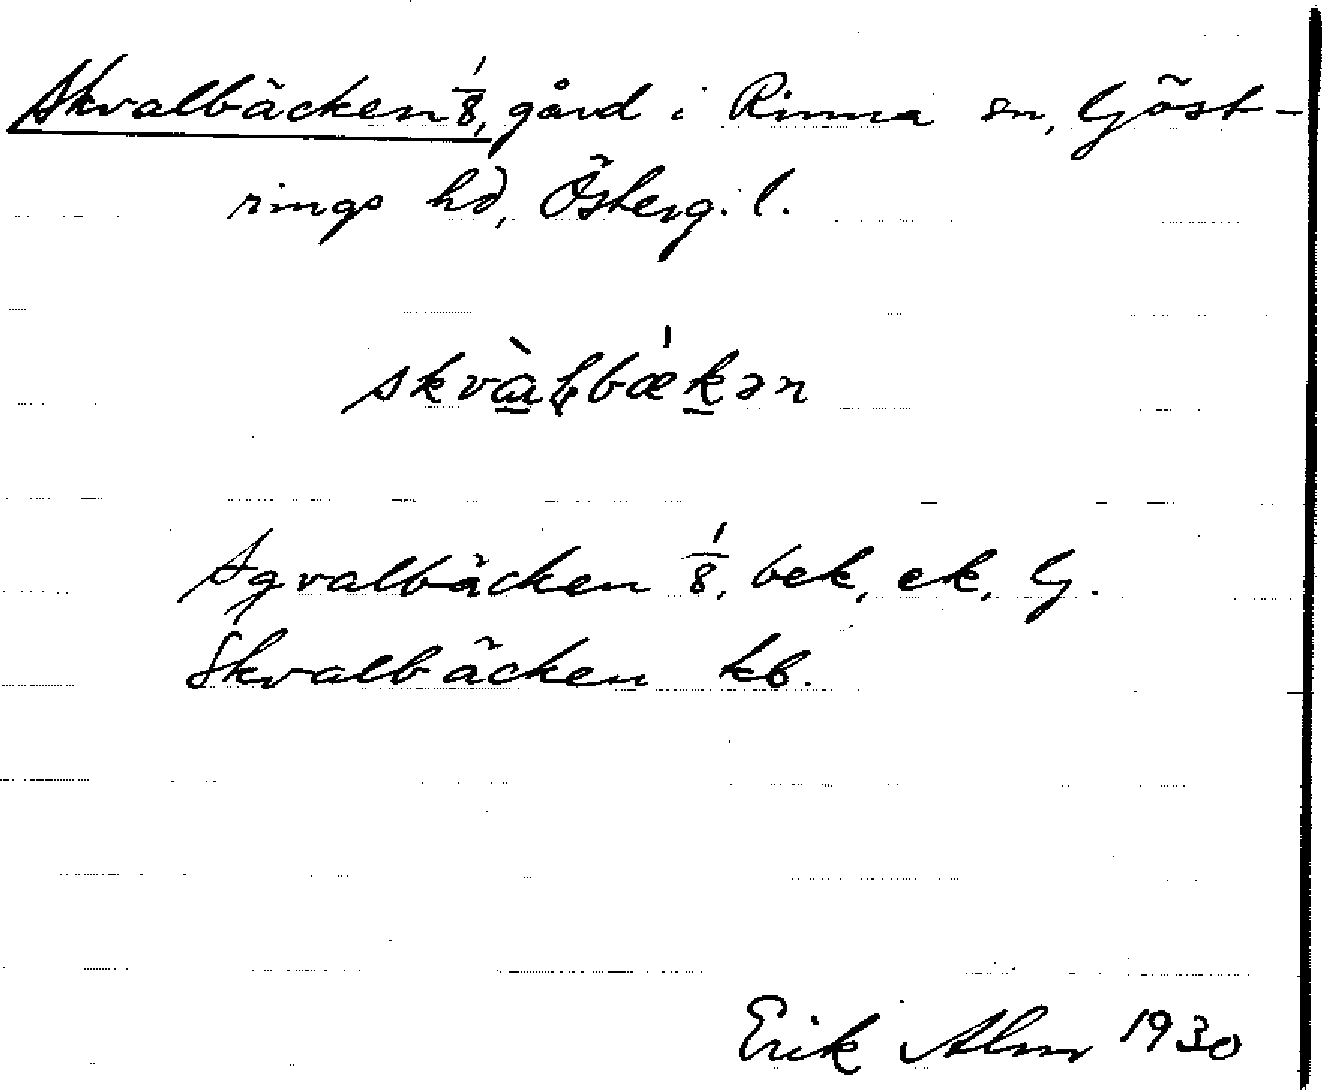 Skvalbäcken 1/8, gård i Rinna sn, Göst-
rings hd, Österg. l.
skvàɽbæ̍kən
Sqvalbäcken 1/8, bek, ek, G.
Skvalbäcken kb.
Erik Alm 1930